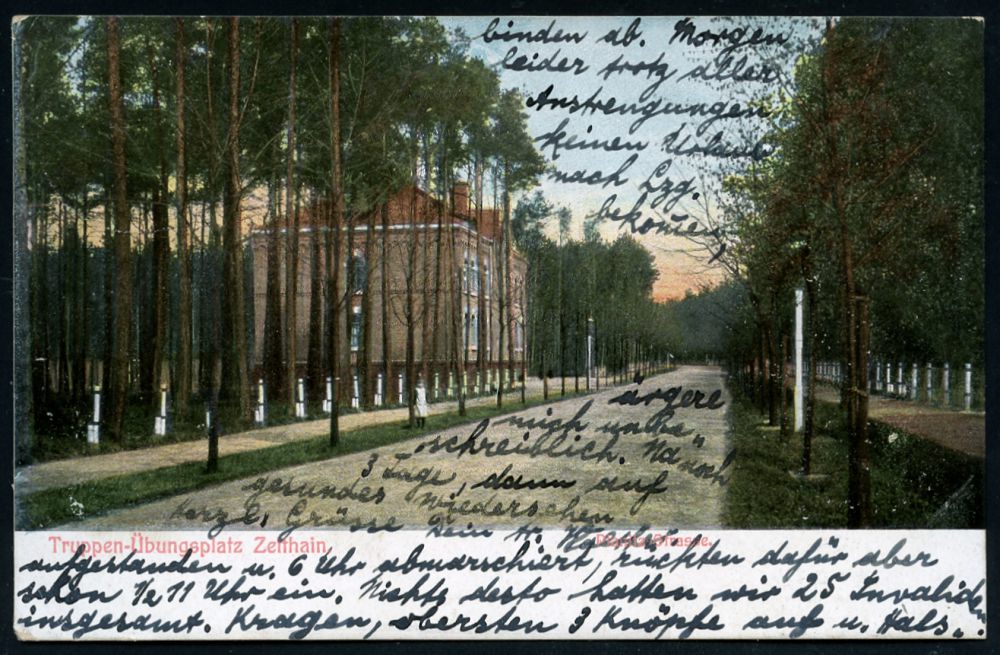 binden ab. Morgen
leider trotz aller
Anstrengungen
keinen Urlaub
nach Lzg.
bekom̄en,
ärgere
mich unbe„
schreiblich. Na noch
3 Tage, dann auf
gesundes Wiedersehen
herzl. Grüsse Dein
Truppen-Übungsplatz Zeithain. Strasse.
aufgestanden u. 6 Uhr abmarschiert, rückten dafür aber
schon 1/2 11 Uhr ein. Nichts desto hatten wir 25 Invaliden
insgesamt. Kragen, obersten 3 Knöpfe auf u. Hals„.